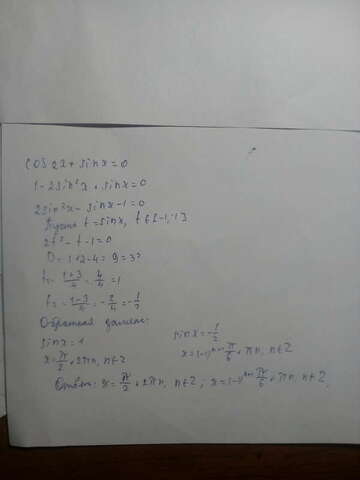 cos 2x + sin x = 0
1 - 2sin²x + sin x = 0
2sin²x - sin x - 1 = 0
Пусть t = sin x, t ∈ [-1; 1]
2t² - t - 1 = 0
D = 1 + 2 · 4 = 9 = 3²
t = (1+3)/4 = 4/4 = 1
t = (1-3)/4 = -2/4 = -1/2
Обратная замена:
sin x = 1
x = π/2 + 2πn, n ∈ Z
sin x = -1/2
x = (-1)ⁿ⁺¹ π/6 + πn, n ∈ Z
Ответ: x = π/2 + 2πn, n ∈ Z; x = (-1)ⁿ⁺¹ π/6 + πn, n ∈ Z.